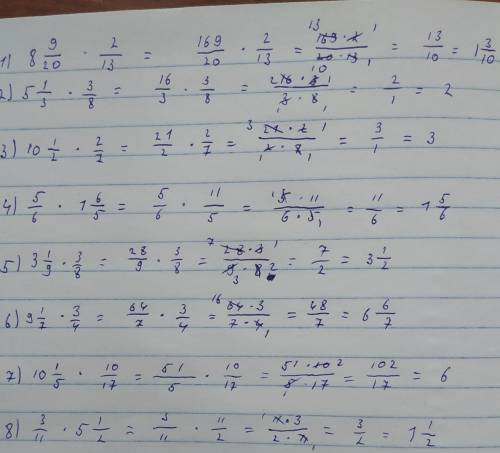 1) 8 9/20 · 2/13 = 169/20 · 2/13 = 13 169 · 2 1 / 10 20 · 13 1 = 13/10 = 1 3/10
2) 5 1/3 · 3/8 = 16/3 · 3/8 = 2 16 · 3 1 / 1 3 · 8 1 = 2/1 = 2
3) 10 1/2 · 2/7 = 21/2 · 2/7 = 3 21 · 2 1 / 1 2 · 7 1 = 3/1 = 3
4) 5/6 · 1 6/5 = 5/6 · 11/5 = 1 5 · 11 / 6 · 5 1 = 11/6 = 1 5/6
5) 3 1/9 · 3/8 = 28/9 · 3/8 = 7 28 · 3 1 / 9 3 · 8 2 = 7/2 = 3 1/2
6) 9 1/7 · 3/4 = 64/7 · 3/4 = 16 64 · 3 / 7 · 4 1 = 48/7 = 6 6/7
7) 10 1/5 · 10/17 = 51/5 · 10/17 = 51 · 10 2 / 5 1 · 17 = 102/17 = 6
8) 3/11 · 5 1/2 = 3/11 · 11/2 = 1 11 · 3 / 2 · 11 1 = 3/2 = 1 1/2